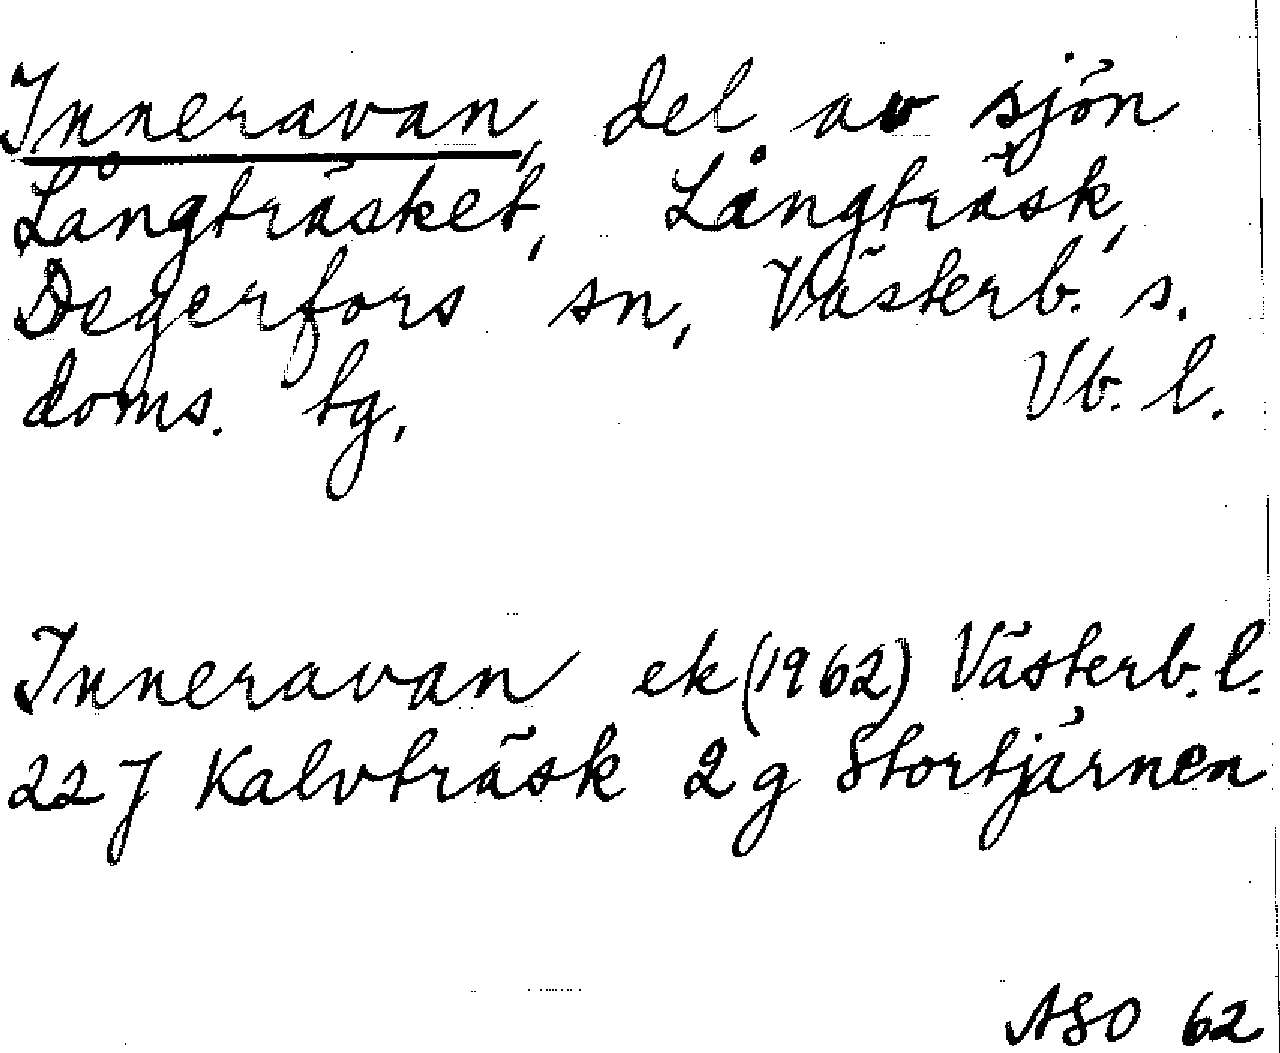 Inneravan, del av sjön
Långträsket, Långträsk,
Degerfors sn, Västerb. s.
doms. tg, Vb. l.
Inneravan ek (1962) Västerb. l.
22J Kalvträsk 2 g Stortjärnen
ASO 62